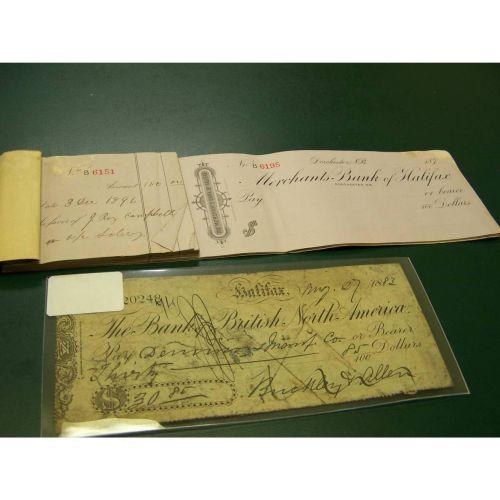 No. B 6151
Amount 100 00
Date 3 Dec 1896
favor of J. Roy Campbell
on a/c Salary
No. B 6195
Dorchester, N.B. 189
Merchants-Bank of Halifax
DORCHESTER, N.B.
Pay or bearer
$ 100 Dollars
20248 Halifax, Aug 27 1882
The Bank of British North America
Pay Dominion Co. or Bearer
Thirty 85 100 Dollars
$ 30.85 Buckley & Allen